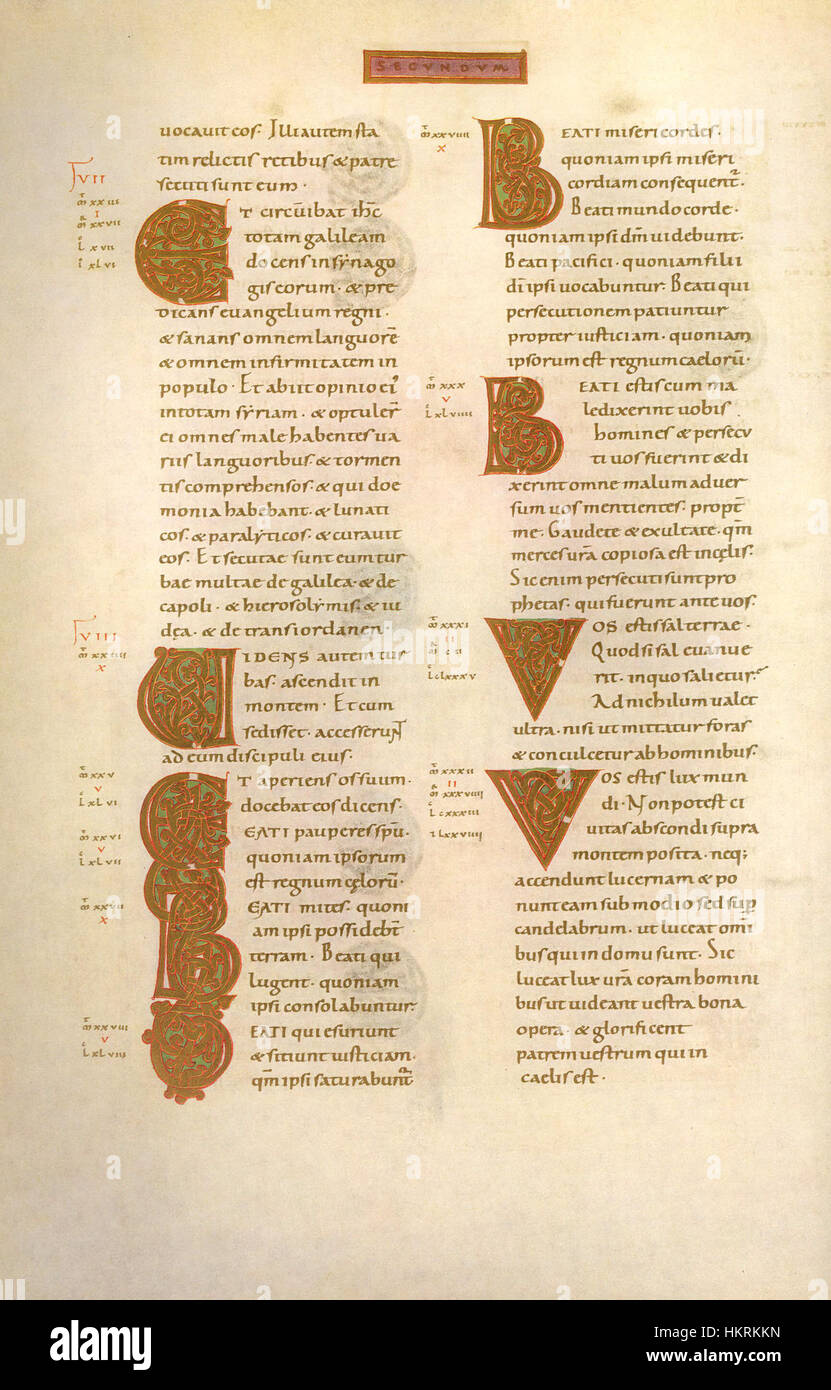 SECUNDUM
uocauit eos· Illi autem sta
tim relictis retibus & patre
secuti sunt eum·
ET circūibat ihc̄
totam galileam
docens in synago
gis eorum· & pre
dicans euangelium regni·
& sanans omnem languorē
& omnem infirmitatem in
populo· Et abiit opinio ei᷒
in totam syriam· & optuler̄
ei omnes male habentes ua
riis languoribus· & tormen
tis comprehensos· & qui doe
monia habebant· & lunati
cos· & paralyticos· & curauit
eos· Et secutae sunt eum tur
bae multae de galilea· & de
capoli· & hierosolymis· & iu
dęa· & de transiordanen·
UIDENS autem tur
bas· ascendit in
montem· Et cum
sedisset· accesserunt
ad eum discipuli eius·
ET aperiens os suum·
docebat eos dicens·
BEATI pauperes spū·
quoniam ipsorum
est regnum cęlorū·
BEATI mites· quoni
am ipsi possidebt̄
terram· Beati qui
lugent· quoniam
ipsi consolabuntur·
BEATI qui esuriunt
& sitiunt iusticiam·
qm̄ ipsi saturabunt̄
BEATI misericordes·
quoniam ipsi miseri
cordiam consequent̄·
Beati mundo corde·
quoniam ipsi dm̄ uidebunt·
Beati pacifici· quoniam filii
dī ipsi uocabuntur· Beati qui
persecutionem patiuntur
propter iusticiam· quoniam
ipsorum est regnum caelorū·
BEATI estis cum ma
ledixerint uobis
homines & persecu
ti uos fuerint & di
xerint omne malum aduer
sum uos mentientes· propt̄
me· Gaudete & exultate· qm̄
merces ur̄a copiosa est in cęlis·
Sic enim persecuti sunt pro
phetas· qui fuerunt ante uos·
VOS estis sal terrae·
Quod si sal euanue
rit· in quo salietur·
Ad nichilum ualet
ultra· nisi ut mittatur foras
& conculcetur ab hominibus·
VOS estis lux mun
di· Non potest ci
uitas abscondi supra
montem posita· neq;
accendunt lucernam & po
nunt eam sub modio sed sup̄
candelabrum· ut luceat omī
bus qui in domu sunt· Sic
luceat lux ur̄a coram homini
bus ut uideant uestra bona
opera· & glorificent
patrem uestrum qui in
caelis est·
alamy
Image ID: HKRKKN
www.alamy.com